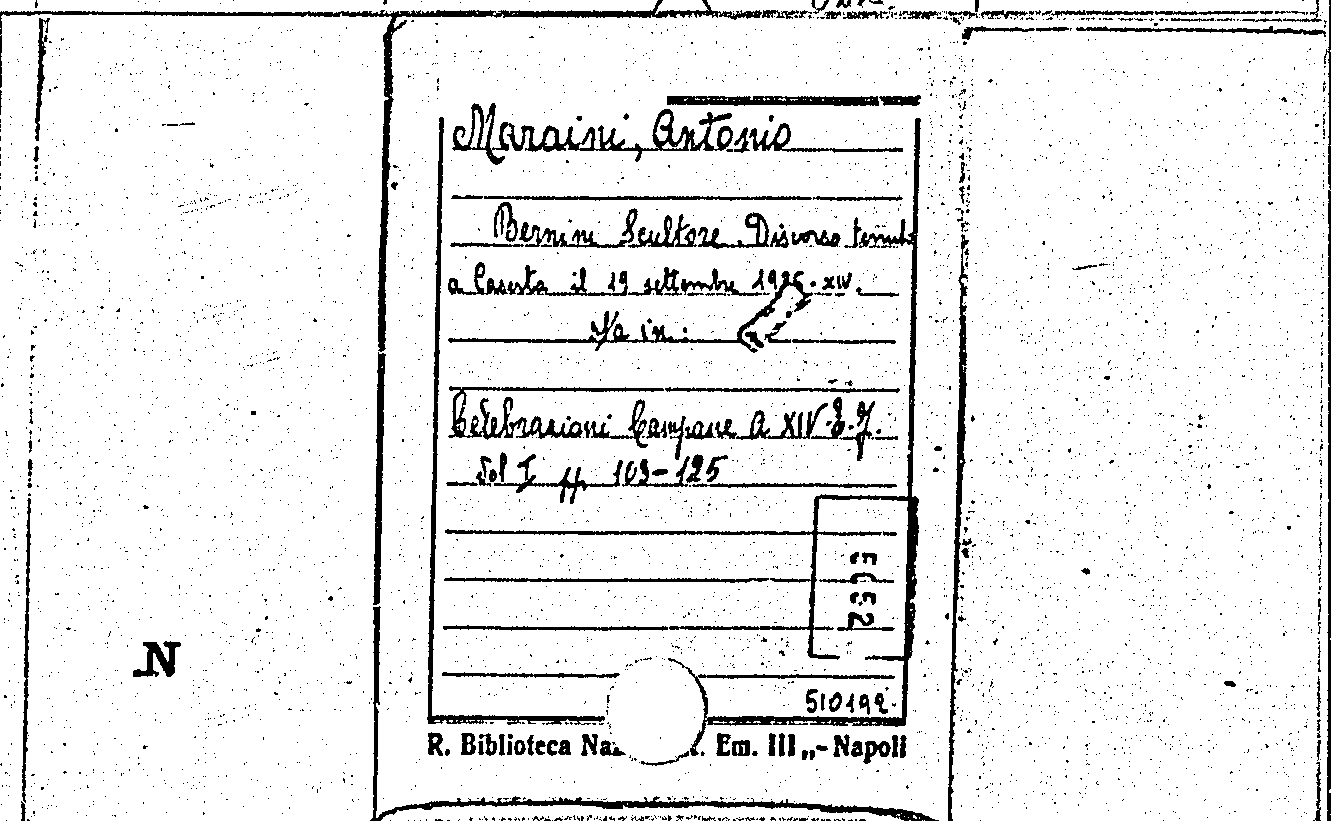 Maraini, Antonio
Bernini Scultore. Discorso tenuto
a Caserta il 19 settembre 1936-XIV.
Sta in:
Celebrazioni Campane A XIV. E.F.
Vol I pp 103-125
5052
510192
N
R. Biblioteca Na . Em. III „- Napoli